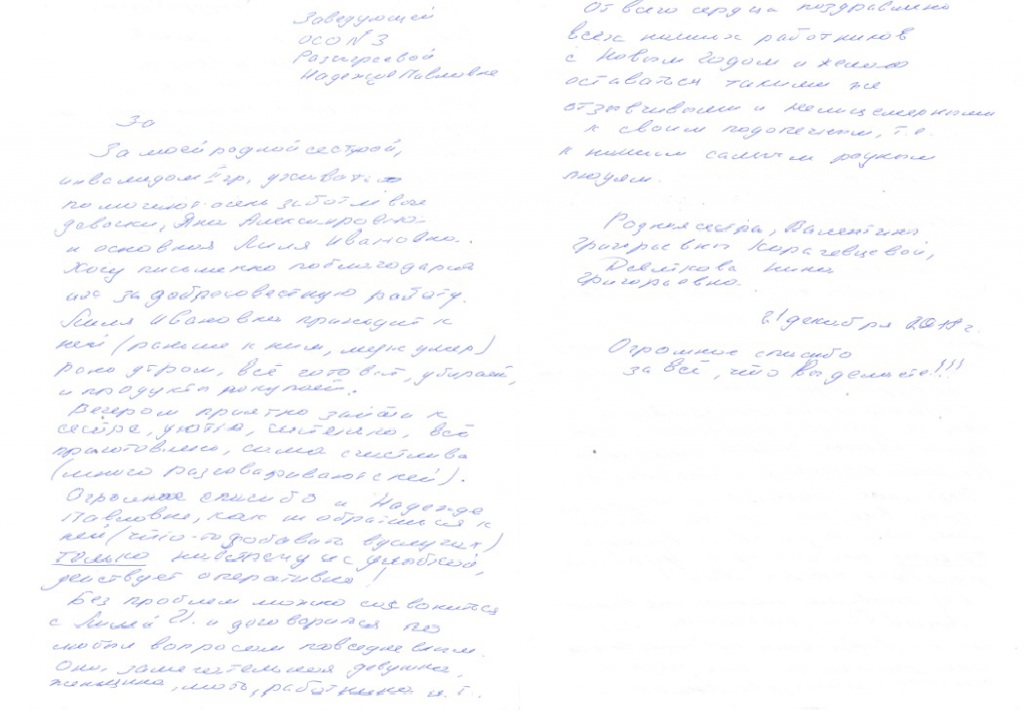 Заведующей
ОСО N 3
Разгуляевой
Надежде Павловне
За
За моей родной сестрой,
инвалидом II гр, ухаживать
помогают очень заботливые
девочки, Яна Александровна
и основная Лиля Ивановна.
Хочу письменно поблагодарить
их за добросовестную работу.
Лиля Ивановна приходит к
ней (раньше к ним, муж умер)
рано утром, всё готовит, убирает,
и продукты покупает.
Вечером приятно зайти к
сестре, уютно, чистенько, всё
приготовлено, сама счастлива
(много разговаривают с ней).
Огромное спасибо и Надежде
Павловне, как не обратишься к
ней (что-то добавить в услугах)
только навстречу и с улыбкой,
действует оперативно!
Без проблем можно созвониться
с Лилей И. и договориться по
любым вопросам повседневным.
Она, замечательная девушка,
женщина, мать, работница и.т.
От всего сердца поздравляю
всех наших работников
с Новым годом и желаю
оставаться такими же
отзывчивыми и нелицемерными
к своим подопечным, т.е.
к нашим самым родным
людям.
Родная сестра, Валентины
Григорьевны Корачевцевой,
Девяткова Нина
Григорьевна.
21 декабря 2018 г.
Огромное спасибо
за всё, что Вы делаете!!!